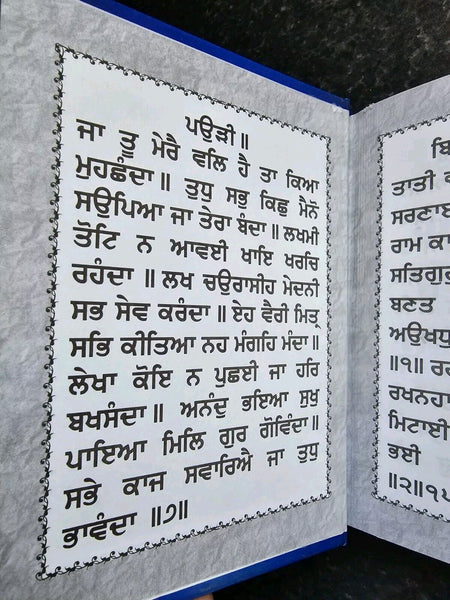 ਪਉੜੀ ॥
ਜਾ ਤੂ ਮੇਰੈ ਵਲਿ ਹੈ ਤਾ ਕਿਆ
ਮੁਹਛੰਦਾ ॥ ਤੁਧੁ ਸਭੁ ਕਿਛੁ ਮੈਨੋ
ਸਉਪਿਆ ਜਾ ਤੇਰਾ ਬੰਦਾ ॥ ਲਖਮੀ
ਤੋਟਿ ਨ ਆਵਈ ਖਾਇ ਖਰਚਿ
ਰਹੰਦਾ ॥ ਲਖ ਚਉਰਾਸੀਹ ਮੇਦਨੀ
ਸਭ ਸੇਵ ਕਰੰਦਾ ॥ ਏਹ ਵੈਰੀ ਮਿਤ੍ਰ
ਸਭਿ ਕੀਤਿਆ ਨਹ ਮੰਗਹਿ ਮੰਦਾ ॥
ਲੇਖਾ ਕੋਇ ਨ ਪੁਛਈ ਜਾ ਹਰਿ
ਬਖਸੰਦਾ ॥ ਅਨੰਦੁ ਭਇਆ ਸੁਖੁ
ਪਾਇਆ ਮਿਲਿ ਗੁਰ ਗੋਵਿੰਦਾ ॥
ਸਭੇ ਕਾਜ ਸਵਾਰਿਐ ਜਾ ਤੁਧੁ
ਭਾਵੰਦਾ ॥੭॥
ਤਾਤੀ
ਸਰਣਾਈ
ਰਾਮ
ਸਤਿਗੁਰੁ
ਬਣਤ
ਅਉਖਧੁ
॥੧॥
ਰਖਨਹਾ
ਮਿਟਾਈ
ਭਈ
॥੨॥੧